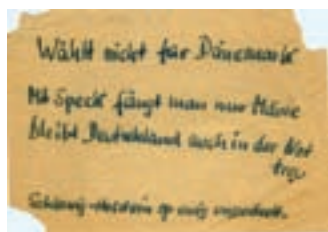 Wählt nicht für Dänemark
Mit Speck fängt man nur Mäuse
bleibt Deutschland auch in der Not
treu
Schleswig-Holstein op ewig ungedeelt.